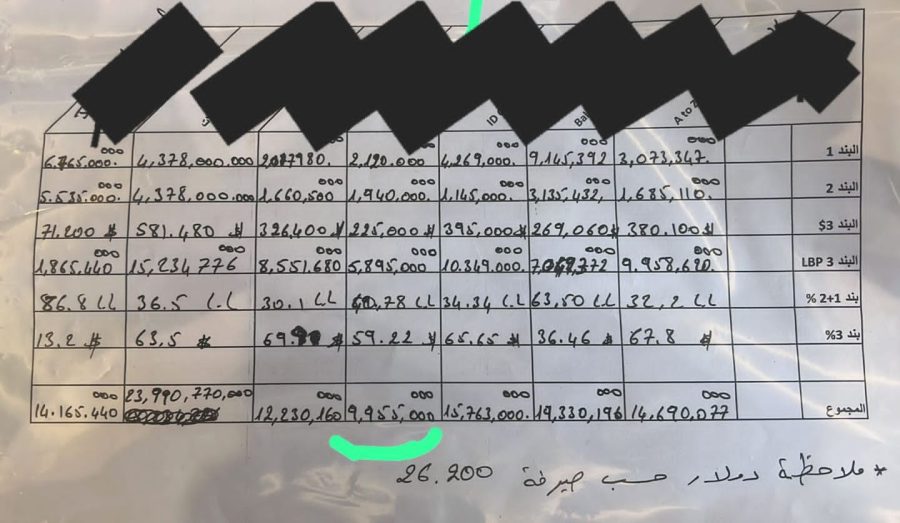 ID Bal A to Z
6.765.000.000 4,378,000.000 2,077980.000 2,120.000 000 4,269,000.000 9,145,392 000 3,073,347.000 البند 1
5.535.000.000 4,378,000.000 1.660,500 000 1,940.000 000 1.145.000.000 3,135,432,000 1,685,110.000 البند 2
71.200 $ 581.480 $ 326,400 $ 225,000 $ 395,000 $ 269,060 $ 380.100 $ البند 3$
1,865.440 000 15,234 776 000 8,551.680 000 5,895,000 000 10.349.000.000 9.958,620.000 البند 3 LBP
86.8 LL 36.5 L.L 30.1 LL 34.34 L.L 63,50 LL 32,2 LL بند 1+2 %
13.2 $ 63,5 $ 59.22 $ 65.65 $ 36.46 $ 67.8 $ بند 3%
14.165.440 000 23,990,770,000 12,230,160 000 9,955,000 000 15,763,000.000 19,330,196 000 14,690,077 000 المجموع
* ملاحظة دولار حسب صيرفة 26.200